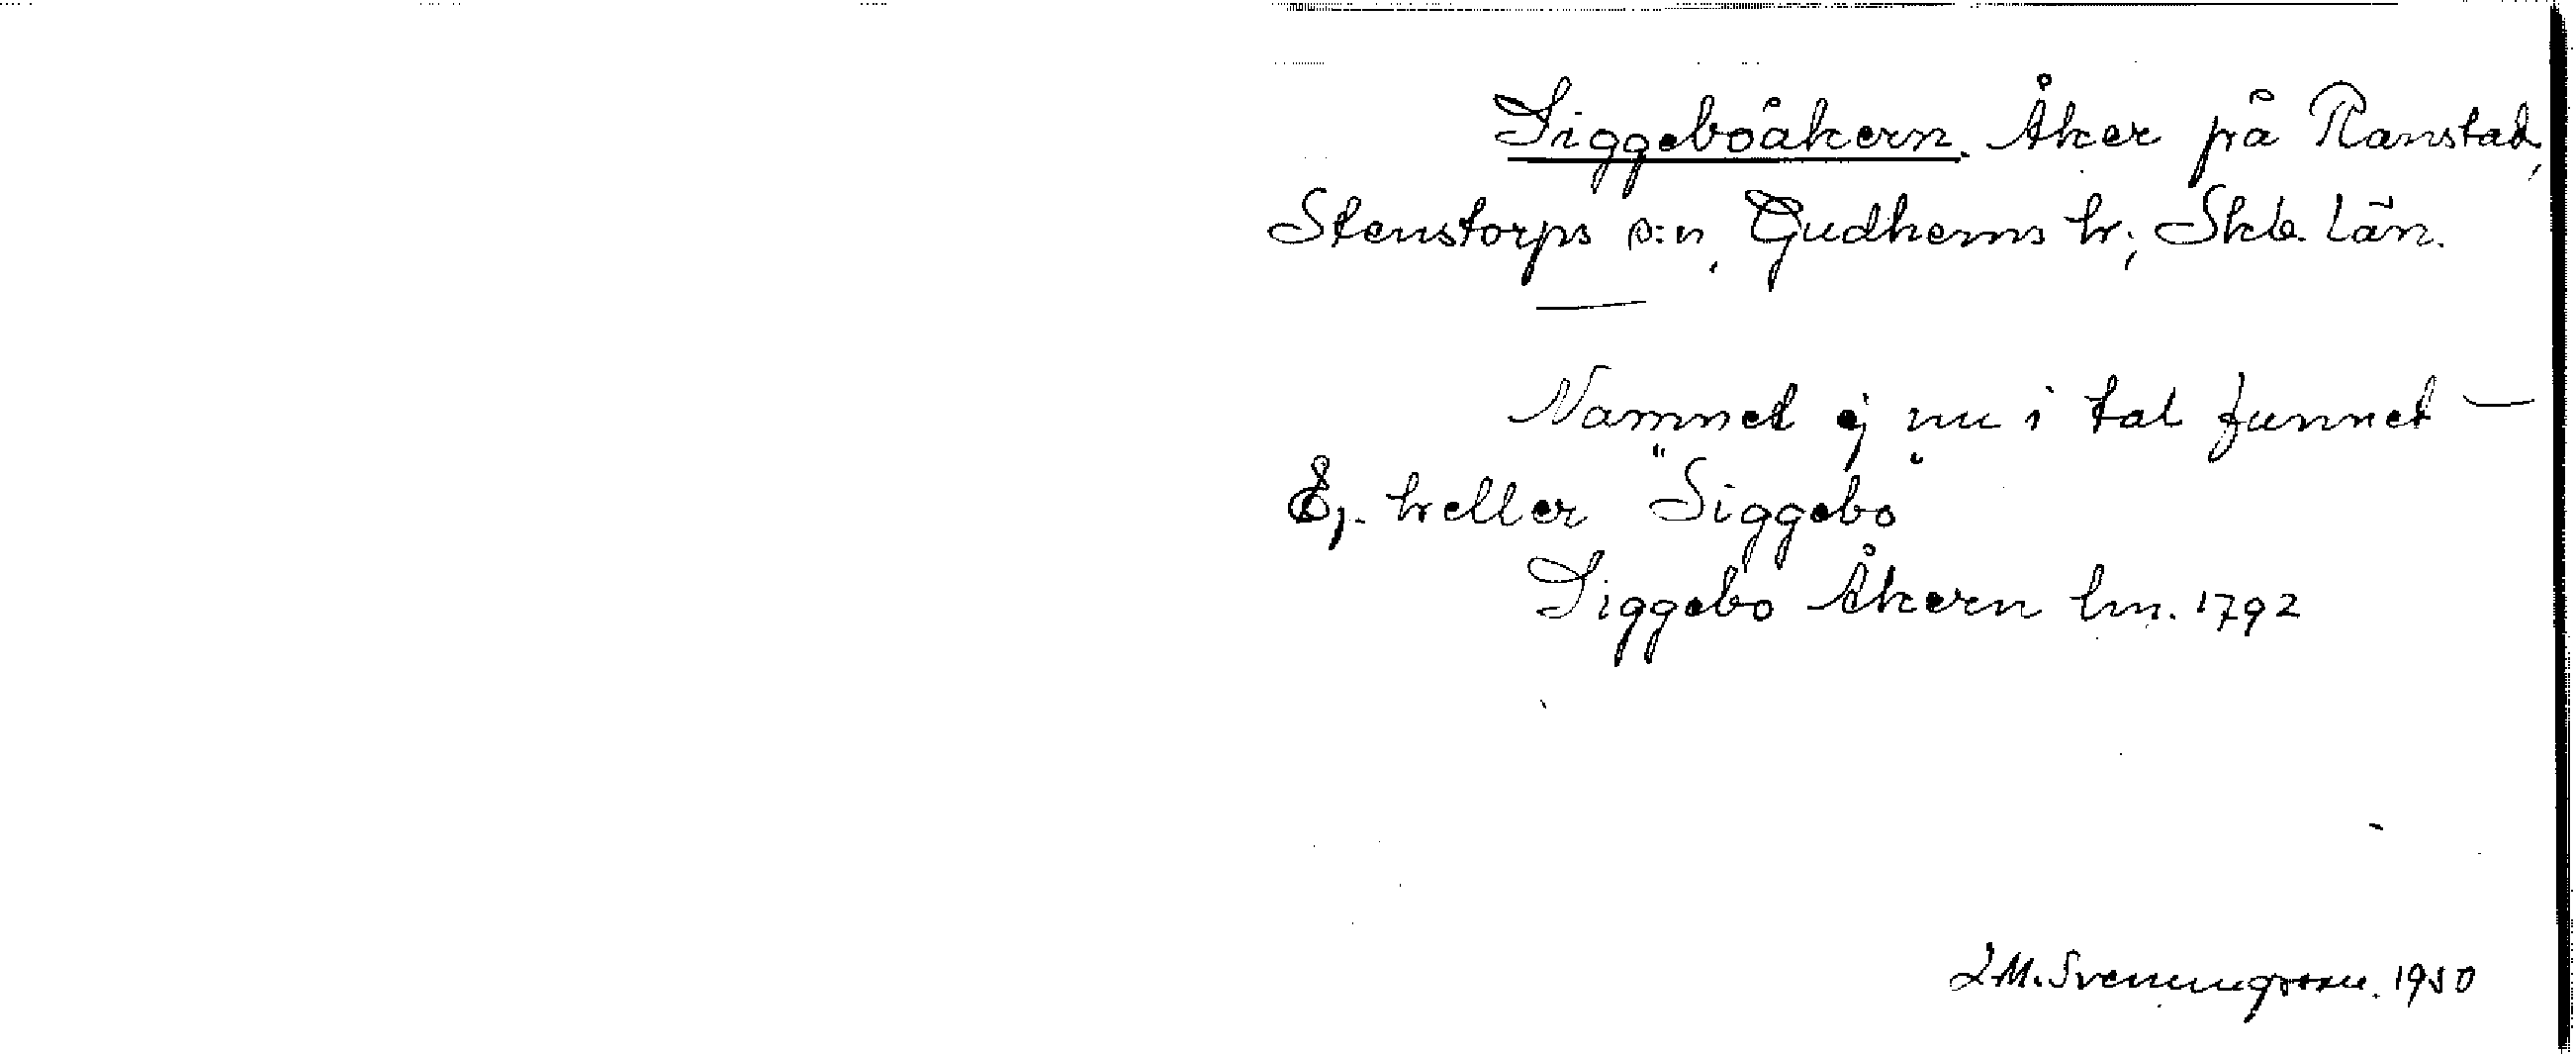 Siggeboåkern. Åker på Ranstad,
Stenstorps s:n, Gudhems hr; Skb. län.
Namnet ej nu i tal funnet —
Ej. heller "Siggebo"
Siggebo Åkern lm. 1792
J M. Svenungsson. 1950